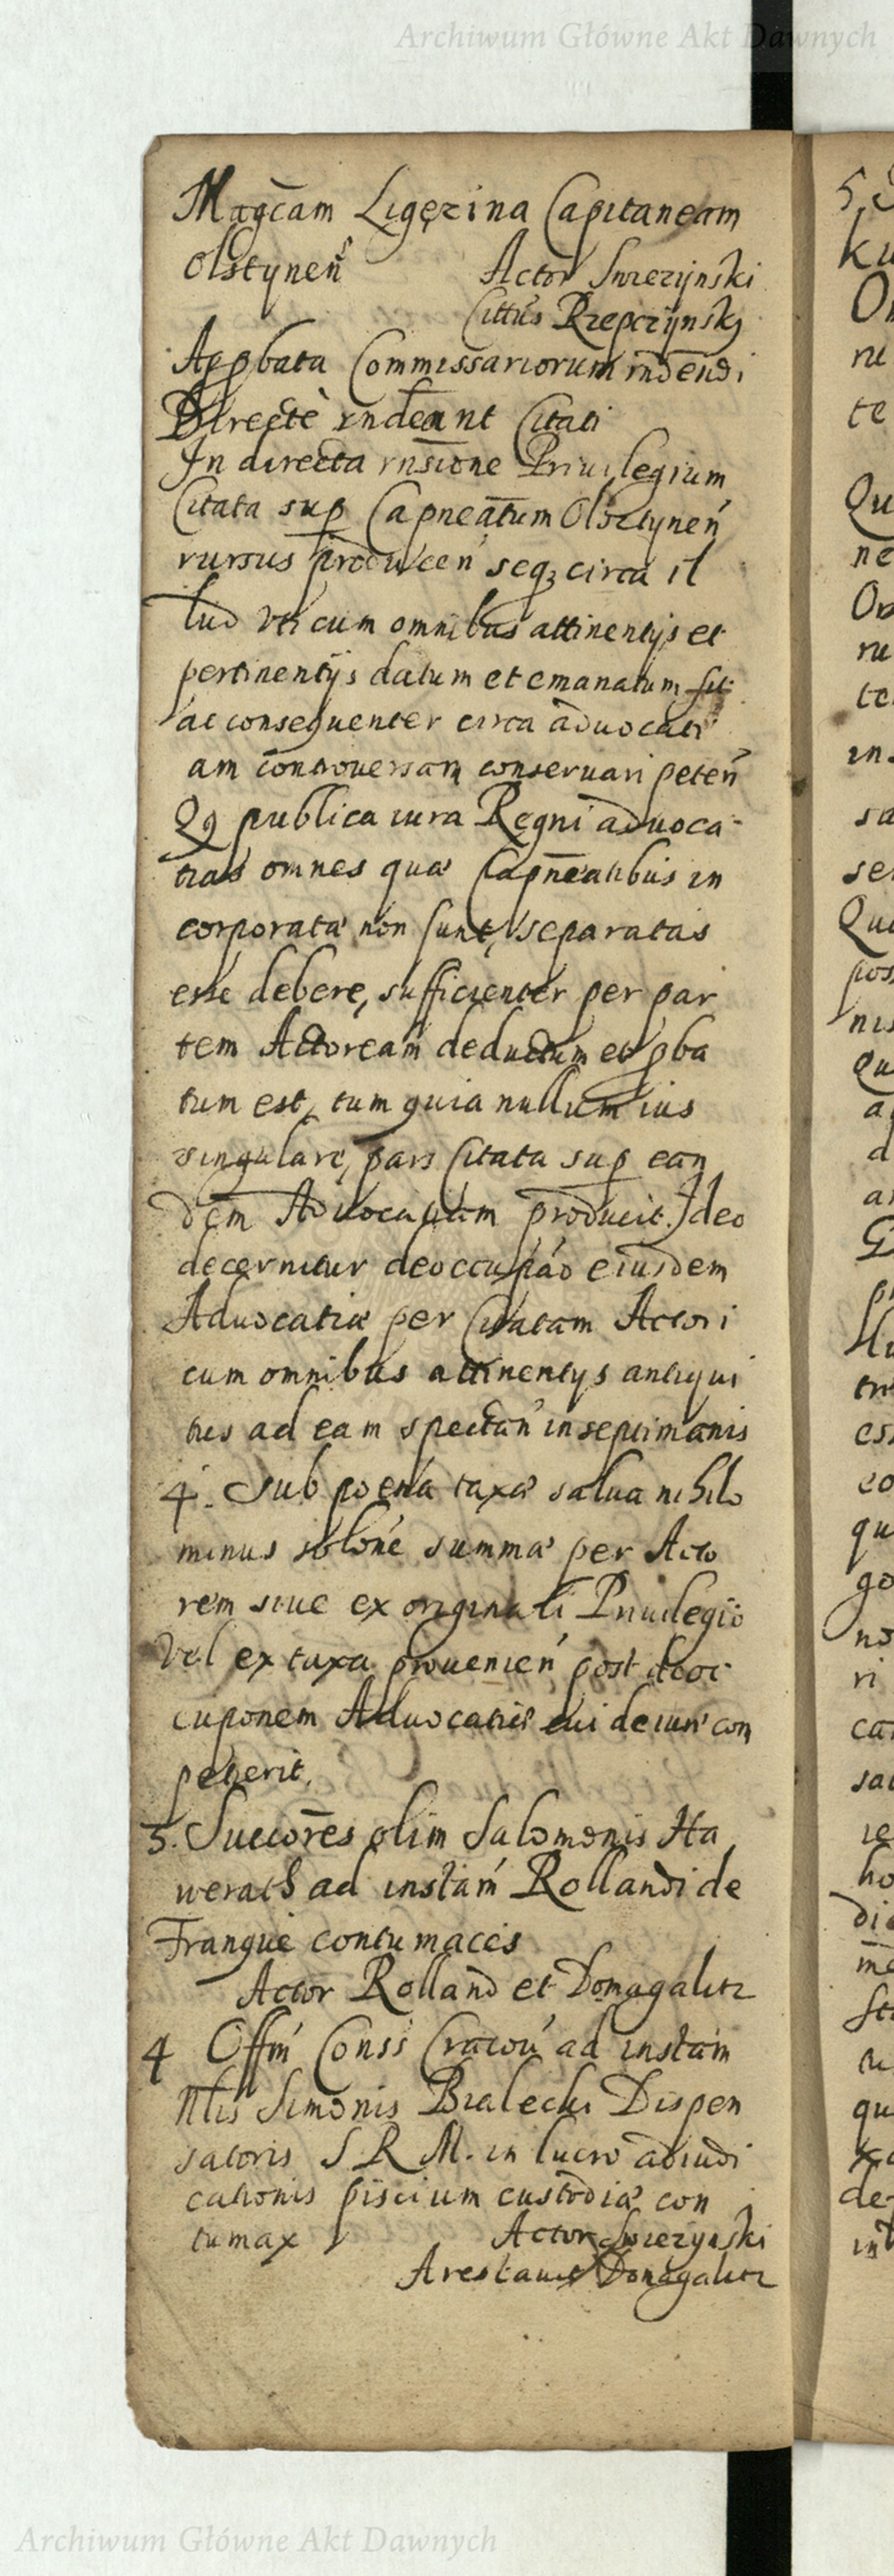 Archiwum Główne Akt Dawnych
Magcam Ligęzina Capitaneam
Olstynen̄
Actor Swieżyński
Cittus Rzepczynsky
Approbata Commissariorum rńdendi
Directè rndeant Citati
In directa rnsione Priuilegium
Citata sup Capneatum Olsztynen̄
rursus producen̄ seq3 circa il
lud vti cum omnibus attinentijs et
pertinentijs datum et emanatum sit
ac consequenter circa aduocati
am controuersam conseruari peten̄
Qꝫ publica iura Regni aduoca-
tias omnes quæ Capneatibus in
corporatæ non sunt, separatas
esse debere, sufficienter per par
tem Actoream deductum et ꝓba
tum est, tum quia nullum ius
singulare, pars Citata sup ean
dem Aduocatiam producit. Ideo
decernitur deoccupáo eiusdem
Aduocatiæ per Citatam Actori
cum omnibus attinentys antiqui
tus ad eam spectan̄ in septimanis
4. Sub poena taxæ salua nihilo
minus solōne summæ per Acto
rem siue ex originali Priuilegio
Vel ex taxa prouenien̄ post deoc
cuponem Aduocatiæ cui de iure com
petierit.
3. Succōres olim Salomonis Ha
werath ad instam̄ Rollandi de
Franqui contumaces
Actor Rolland et Domagalicz
4 Offm̄ Conss Cracou̅ ad instam
Nlis Simonis Bialecki Dispen
satoris S R M. in lucro adiudi
cationis piscium custodiæ con
tumax
Actor Swiezynski
Arestauit Domagalicz
5.
ku
ru
te
Qu
ne
ru
te
in
sa
ser
Qui
pos
nis
Qu
a
d
ar
tri
ess
eo
qu
go
no
ri
car
sal
ie
ho
die
me
qu
de
int
Archiwum Główne Akt Dawnych